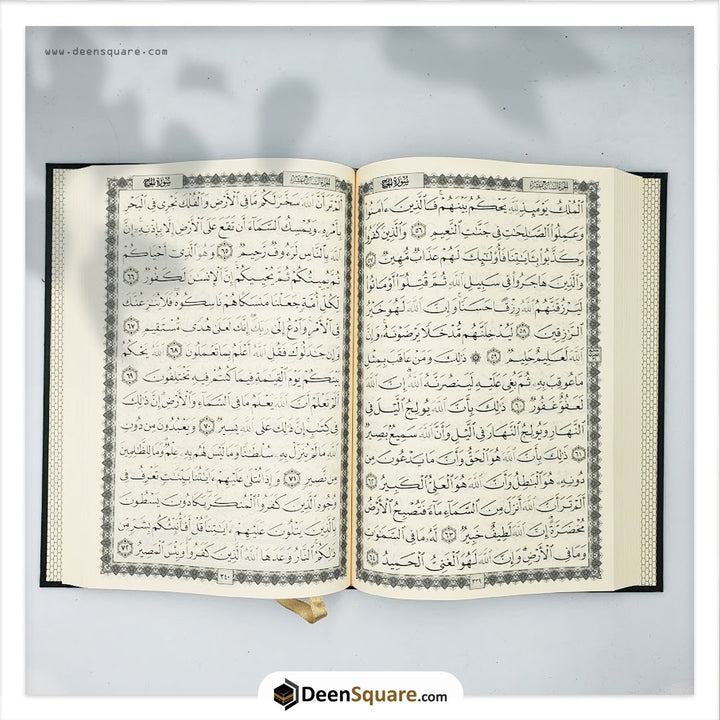 www.deensquare.com
سُورَةُ الحَجّ
الجُزْءُ السَّابِعَ عَشَرَ
ٱلْمُلْكُ يَوْمَئِذٍ لِّلَّهِ يَحْكُمُ بَيْنَهُمْ فَٱلَّذِينَ ءَامَنُوا۟
وَعَمِلُوا۟ ٱلصَّٰلِحَٰتِ فِى جَنَّٰتِ ٱلنَّعِيمِ ٥٦ وَٱلَّذِينَ كَفَرُوا۟
وَكَذَّبُوا۟ بِـَٔايَٰتِنَا فَأُو۟لَٰٓئِكَ لَهُمْ عَذَابٌ مُّهِينٌ ٥٧
وَٱلَّذِينَ هَاجَرُوا۟ فِى سَبِيلِ ٱللَّهِ ثُمَّ قُتِلُوٓا۟ أَوْ مَاتُوا۟
لَيَرْزُقَنَّهُمُ ٱللَّهُ رِزْقًا حَسَنًا وَإِنَّ ٱللَّهَ لَهُوَ خَيْرُ
ٱلرَّٰزِقِينَ ٥٨ لَيُدْخِلَنَّهُم مُّدْخَلًا يَرْضَوْنَهُۥ وَإِنَّ
ٱللَّهَ لَعَلِيمٌ حَلِيمٌ ٥٩ ذَٰلِكَ وَمَنْ عَاقَبَ بِمِثْلِ
مَا عُوقِبَ بِهِۦ ثُمَّ بُغِىَ عَلَيْهِ لَيَنصُرَنَّهُ ٱللَّهُ إِنَّ ٱللَّهَ
لَعَفُوٌّ غَفُورٌ ٦٠ ذَٰلِكَ بِأَنَّ ٱللَّهَ يُولِجُ ٱلَّيْلَ فِى
ٱلنَّهَارِ وَيُولِجُ ٱلنَّهَارَ فِى ٱلَّيْلِ وَأَنَّ ٱللَّهَ سَمِيعٌۢ بَصِيرٌ ٦١
ذَٰلِكَ بِأَنَّ ٱللَّهَ هُوَ ٱلْحَقُّ وَأَنَّ مَا يَدْعُونَ مِن
دُونِهِۦ هُوَ ٱلْبَٰطِلُ وَأَنَّ ٱللَّهَ هُوَ ٱلْعَلِىُّ ٱلْكَبِيرُ ٦٢
أَلَمْ تَرَ أَنَّ ٱللَّهَ أَنزَلَ مِنَ ٱلسَّمَآءِ مَآءً فَتُصْبِحُ ٱلْأَرْضُ
مُخْضَرَّةً إِنَّ ٱللَّهَ لَطِيفٌ خَبِيرٌ ٦٣ لَّهُۥ مَا فِى ٱلسَّمَٰوَٰتِ
وَمَا فِى ٱلْأَرْضِ وَإِنَّ ٱللَّهَ لَهُوَ ٱلْغَنِىُّ ٱلْحَمِيدُ ٦٤
٣٣٩
سُورَةُ الحَجّ
الجُزْءُ السَّابِعَ عَشَرَ
أَلَمْ تَرَ أَنَّ ٱللَّهَ سَخَّرَ لَكُم مَّا فِى ٱلْأَرْضِ وَٱلْفُلْكَ تَجْرِى فِى ٱلْبَحْرِ
بِأَمْرِهِۦ وَيُمْسِكُ ٱلسَّمَآءَ أَن تَقَعَ عَلَى ٱلْأَرْضِ إِلَّا بِإِذْنِهِۦٓ إِنَّ
ٱللَّهَ بِٱلنَّاسِ لَرَءُوفٌ رَّحِيمٌ ٦٥ وَهُوَ ٱلَّذِىٓ أَحْيَاكُمْ
ثُمَّ يُمِيتُكُمْ ثُمَّ يُحْيِيكُمْ إِنَّ ٱلْإِنسَٰنَ لَكَفُورٌ ٦٦
لِّكُلِّ أُمَّةٍ جَعَلْنَا مَنسَكًا هُمْ نَاسِكُوهُ فَلَا يُنَٰزِعُنَّكَ
فِى ٱلْأَمْرِ وَٱدْعُ إِلَىٰ رَبِّكَ إِنَّكَ لَعَلَىٰ هُدًى مُّسْتَقِيمٍ ٦٧
وَإِن جَٰدَلُوكَ فَقُلِ ٱللَّهُ أَعْلَمُ بِمَا تَعْمَلُونَ ٦٨ ٱللَّهُ يَحْكُمُ
بَيْنَكُمْ يَوْمَ ٱلْقِيَٰمَةِ فِيمَا كُنتُمْ فِيهِ تَخْتَلِفُونَ ٦٩
أَلَمْ تَعْلَمْ أَنَّ ٱللَّهَ يَعْلَمُ مَا فِى ٱلسَّمَآءِ وَٱلْأَرْضِ إِنَّ ذَٰلِكَ
فِى كِتَٰبٍ إِنَّ ذَٰلِكَ عَلَى ٱللَّهِ يَسِيرٌ ٧٠ وَيَعْبُدُونَ مِن دُونِ
ٱللَّهِ مَا لَمْ يُنَزِّلْ بِهِۦ سُلْطَٰنًا وَمَا لَيْسَ لَهُم بِهِۦ عِلْمٌ وَمَا لِلظَّٰلِمِينَ
مِن نَّصِيرٍ ٧١ وَإِذَا تُتْلَىٰ عَلَيْهِمْ ءَايَٰتُنَا بَيِّنَٰتٍ تَعْرِفُ فِى
وُجُوهِ ٱلَّذِينَ كَفَرُوا۟ ٱلْمُنكَرَ يَكَادُونَ يَسْطُونَ
بِٱلَّذِينَ يَتْلُونَ عَلَيْهِمْ ءَايَٰتِنَا قُلْ أَفَأُنَبِّئُكُم بِشَرٍّ مِّن
ذَٰلِكُمُ ٱلنَّارُ وَعَدَهَا ٱللَّهُ ٱلَّذِينَ كَفَرُوا۟ وَبِئْسَ ٱلْمَصِيرُ ٧٢
٣٤٠
DeenSquare.com